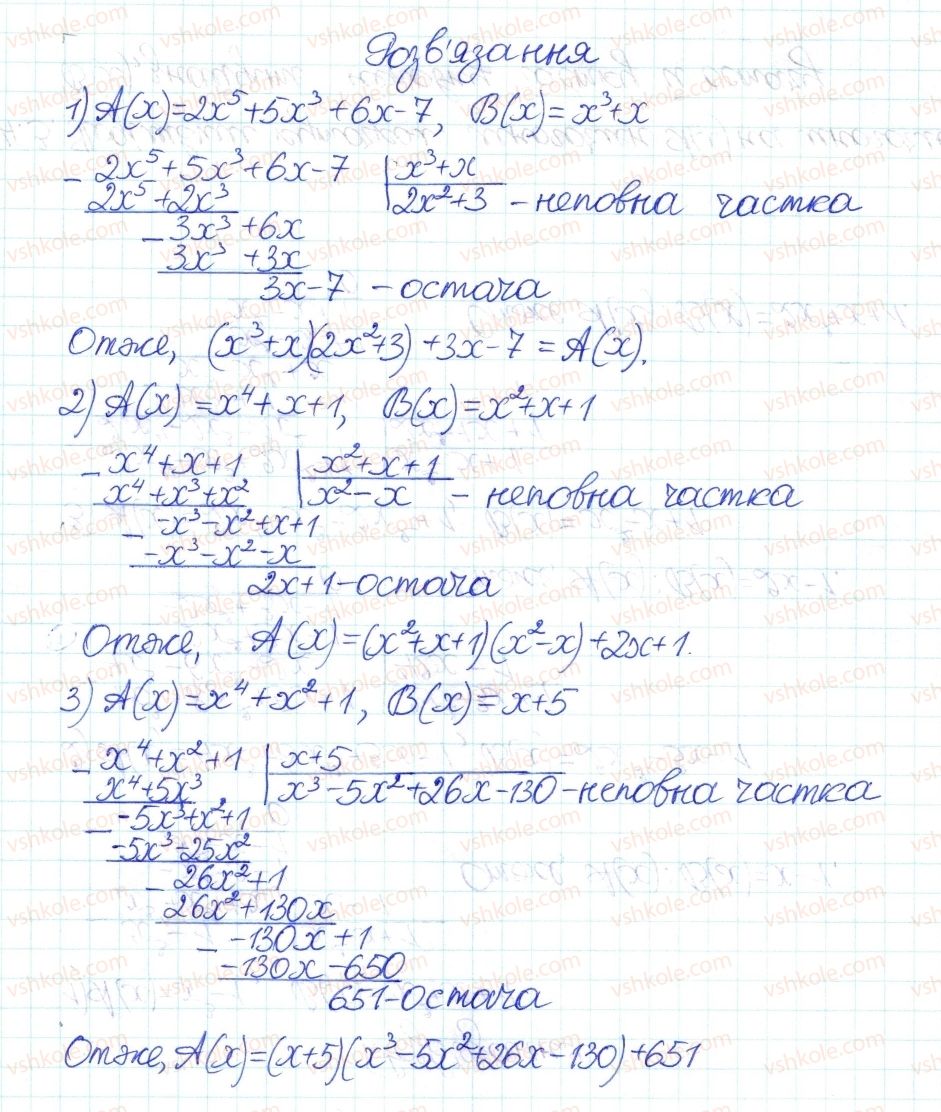 Розв'язання
1) A(x)=2x⁵+5x³+6x-7, B(x)=x³+x
- 2x⁵+5x³+6x-7 | x³+x
2x⁵+2x³ | 2x²+3 - неповна частка
- 3x³+6x
3x³+3x
3x-7 - остача
Отже, (x³+x)(2x²+3)+3x-7=A(x).
2) A(x)=x⁴+x+1, B(x)=x²+x+1
- x⁴+x+1 | x²+x+1
x⁴+x³+x² | x²-x - неповна частка
- -x³-x²+x+1
-x³-x²-x
2x+1 - остача
Отже, A(x)=(x²+x+1)(x²-x)+2x+1.
3) A(x)=x⁴+x²+1, B(x)=x+5
- x⁴+x²+1 | x+5
x⁴+5x³ | x³-5x²+26x-130 - неповна частка
- -5x³+x²+1
-5x³-25x²
- 26x²+1
26x²+130x
- -130x+1
-130x-650
651 - остача
Отже, A(x)=(x+5)(x³-5x²+26x-130)+651
vshkole.com